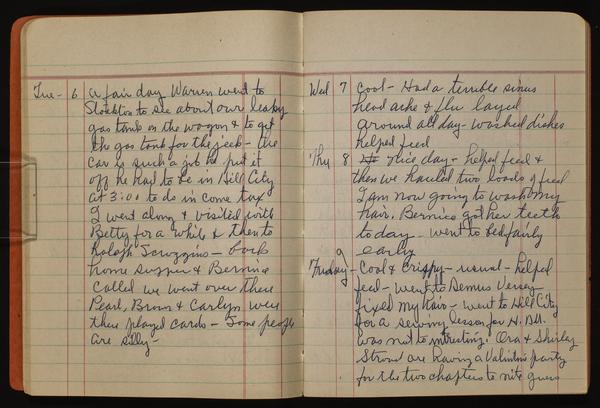 Tue - 6 a fair day Warren went to
Stockton to see about our leaky
gas tank on the wagon & to get
the gas tank for the jeep - the
car is such a job he put it
off he had to be in Hill City
at 3:00 to do in come tax
I went along & visited with
Betty for a while & then to
Ralph Scroggins - back
home supper & Bernice
called we went over there
Pearl, Brown & Carlyn were
there played cards - Some people
are silly -
Wed 7 Cool - Had a terrible sinus
head ache & flu layed
around all day - washed dishes
helped feed
Thu 8 nice day - helped feed &
then we hauled two loads of feed
I am now going to wash my
hair. Bernice got her teeth
to day - went to bed fairly
early
Friday 9 - Cool & Crispy - usual - helped
feed - went to Demus Versey
fixed my hair - went to Hill City
for a sewing lesson for H. D. U.
was not to intresting. Ora & Shirley
Stroud are having a Valentine party
for the two chapters to nite guess